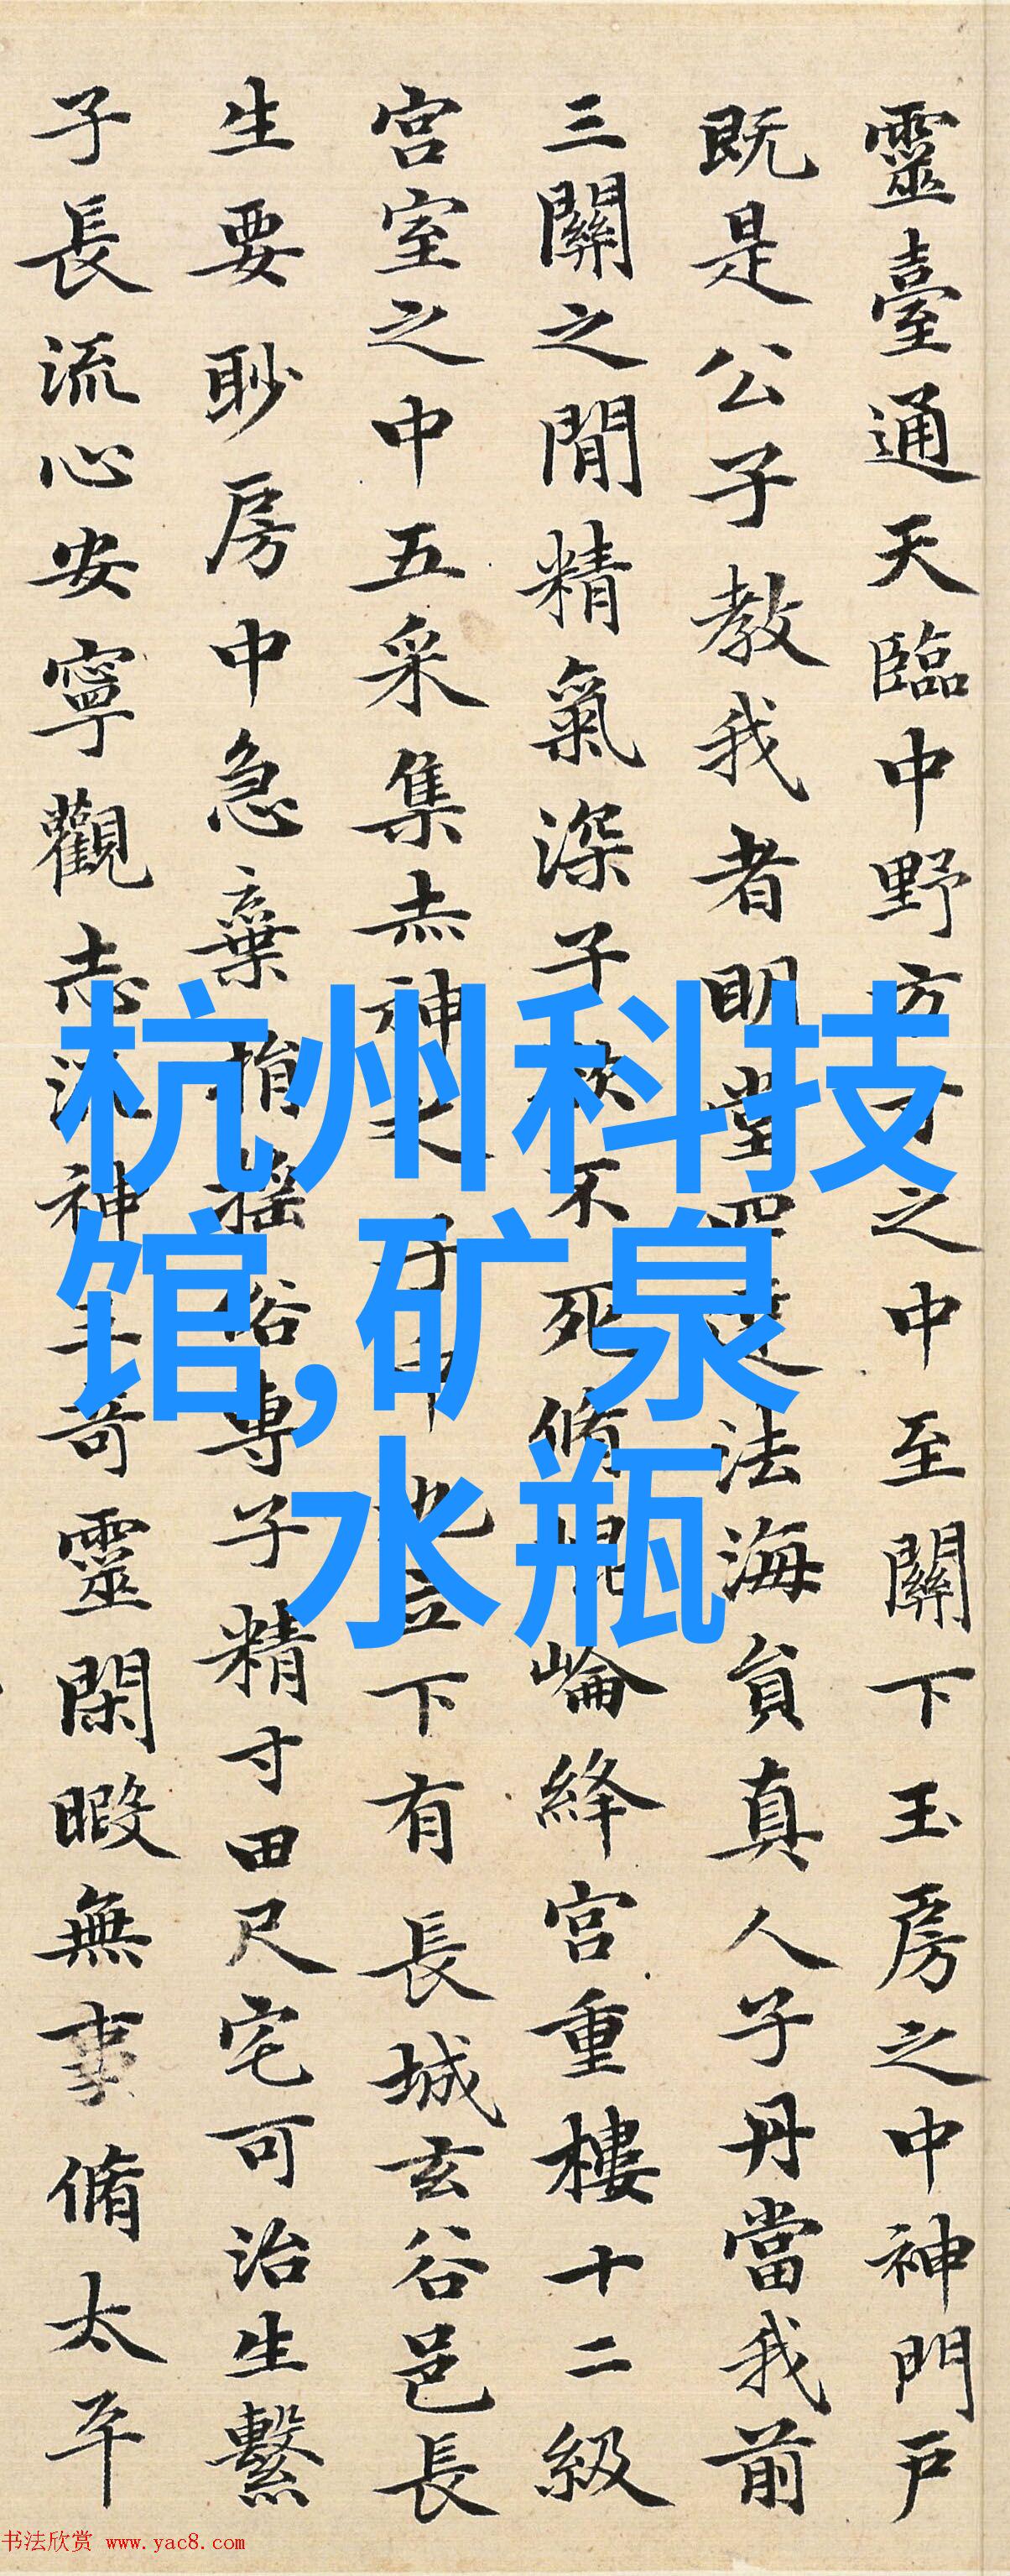 靈臺通天臨中野方寸之中至關下玉房之中神門戶
既是公子教我者明堂四達法海負真人子丹當我前
三關之間精氣深子欲不死脩崑崙絳宮重樓十二級
宮室之中五采集赤神之子中池立下有長城玄谷邑長
生要眇房中急棄捐搖俗專子精寸田尺宅可治生繫
子長流心安寧觀志流神三奇靈閑暇無事脩太平
杭州科技
馆,矿泉
水瓶
书法欣赏 www.yac8.com